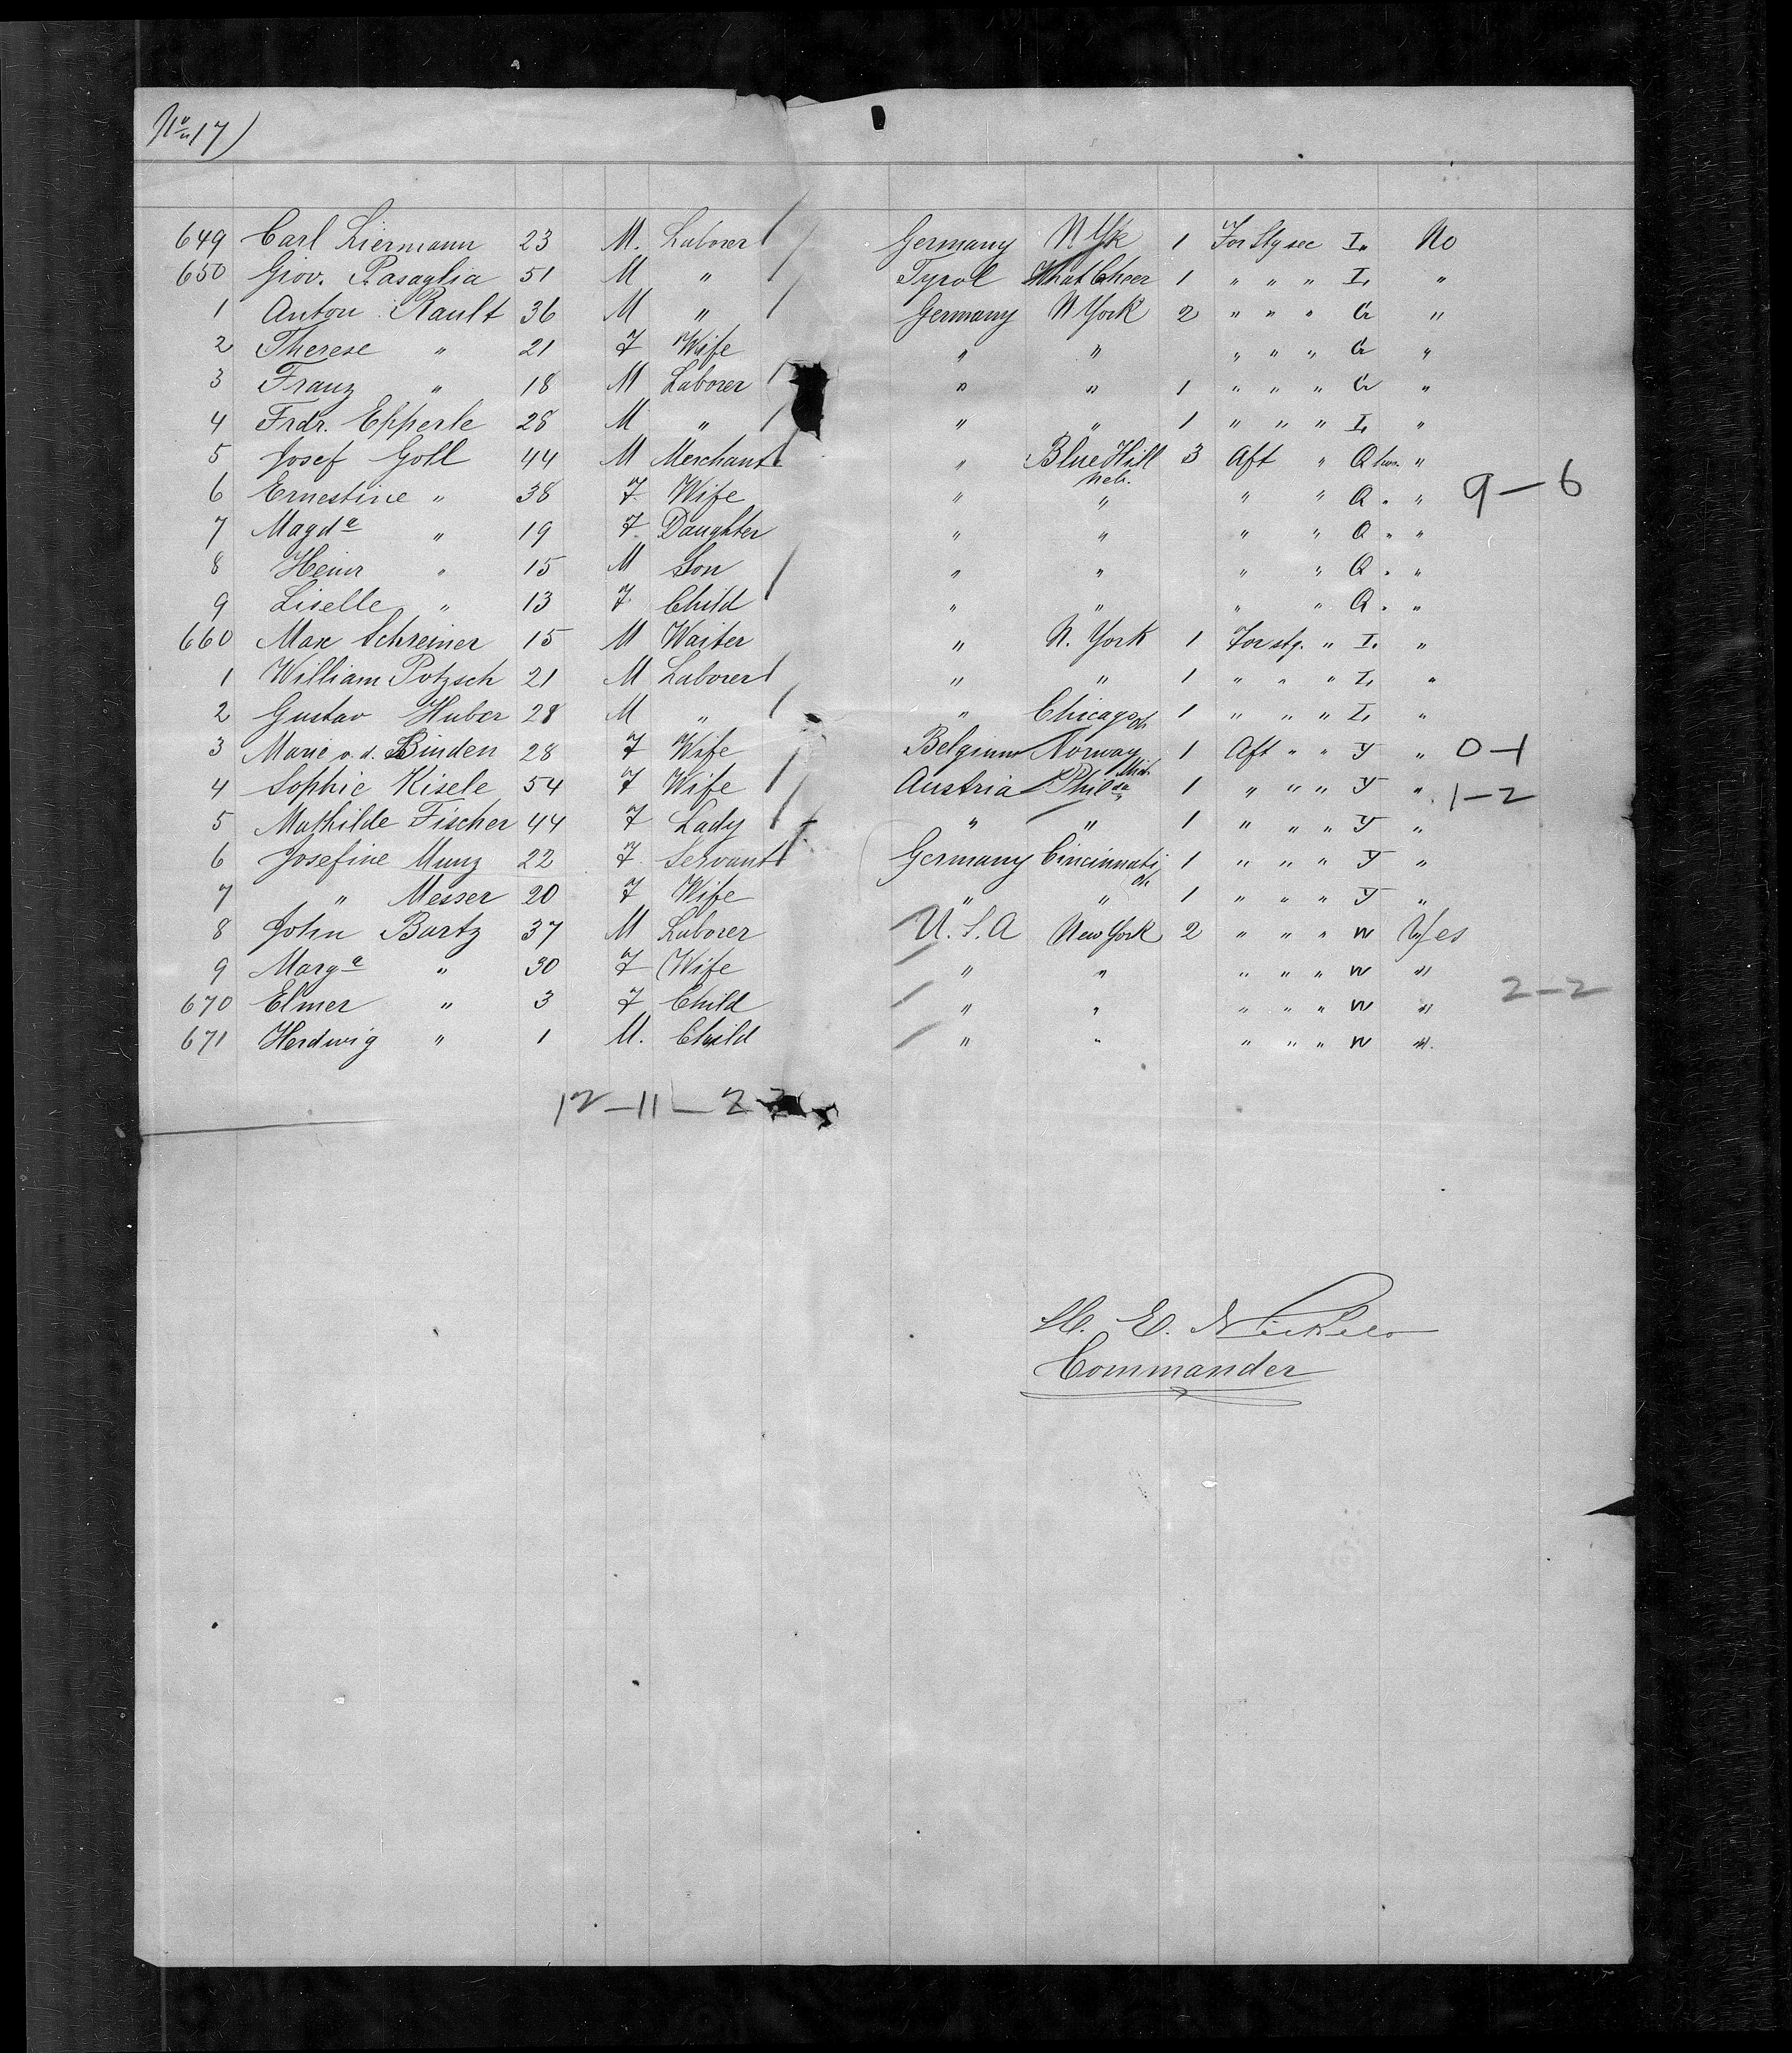 No 17)
649 Carl Liermann 23 M. Laborer Germany N Yk 1 For Stg sec I. No
650 Giov. Pasaglia 51 M " Tyrol What Cheer 1 " " " I. "
1 Anton Rault 36 M " Germany N York 2 " " " G "
2 Therese " 21 F Wife " " " " " G "
3 Franz " 18 M Laborer " " 1 " " " G "
4 Frdr. Epperle 28 M " " " 1 " " " I. "
5 Josef Goll 44 M Merchant " Blue Hill 3 Aft " Q "
Neb.
6 Ernestine " 38 F. Wife " " " " Q " "
7 Magda " 19 F. Daughter " " " " Q " "
8 Heinr " 15 M Son " " " " Q " "
9 Liselle " 13 F. Child " " " " Q " "
660 Max Schreiner 15 M Waiter " N. York 1 For stg. " I. "
1 William Potzsch 21 M Laborer " " 1 " " " I. "
2 Gustav Huber 28 M " " Chicago 1 " " " I. "
3 Marie v. d. Binden 28 F Wife Belgium Norway 1 Aft " " Y "
Mich.
4 Sophie Kisele 54 F Wife Austria Phila 1 " " " Y "
5 Mathilde Fischer 44 F Lady " " 1 " " " Y "
6 Josefine Munz 22 F. Servant Germany Cincinnati 1 " " " Y "
7 " Messer 20 F Wife " " 1 " " " Y "
8 John Bartz 37 M Laborer U.S.A New York 2 " " " W Yes
9 Marga " 30 F Wife " " " " " W "
670 Elmer " 3 F Child " " " " " W "
671 Herdwig " 1 M. Child " " " " " W "
9-6
0-1
1-2
2-2
12-11-2
H. E. Nickels
Commander